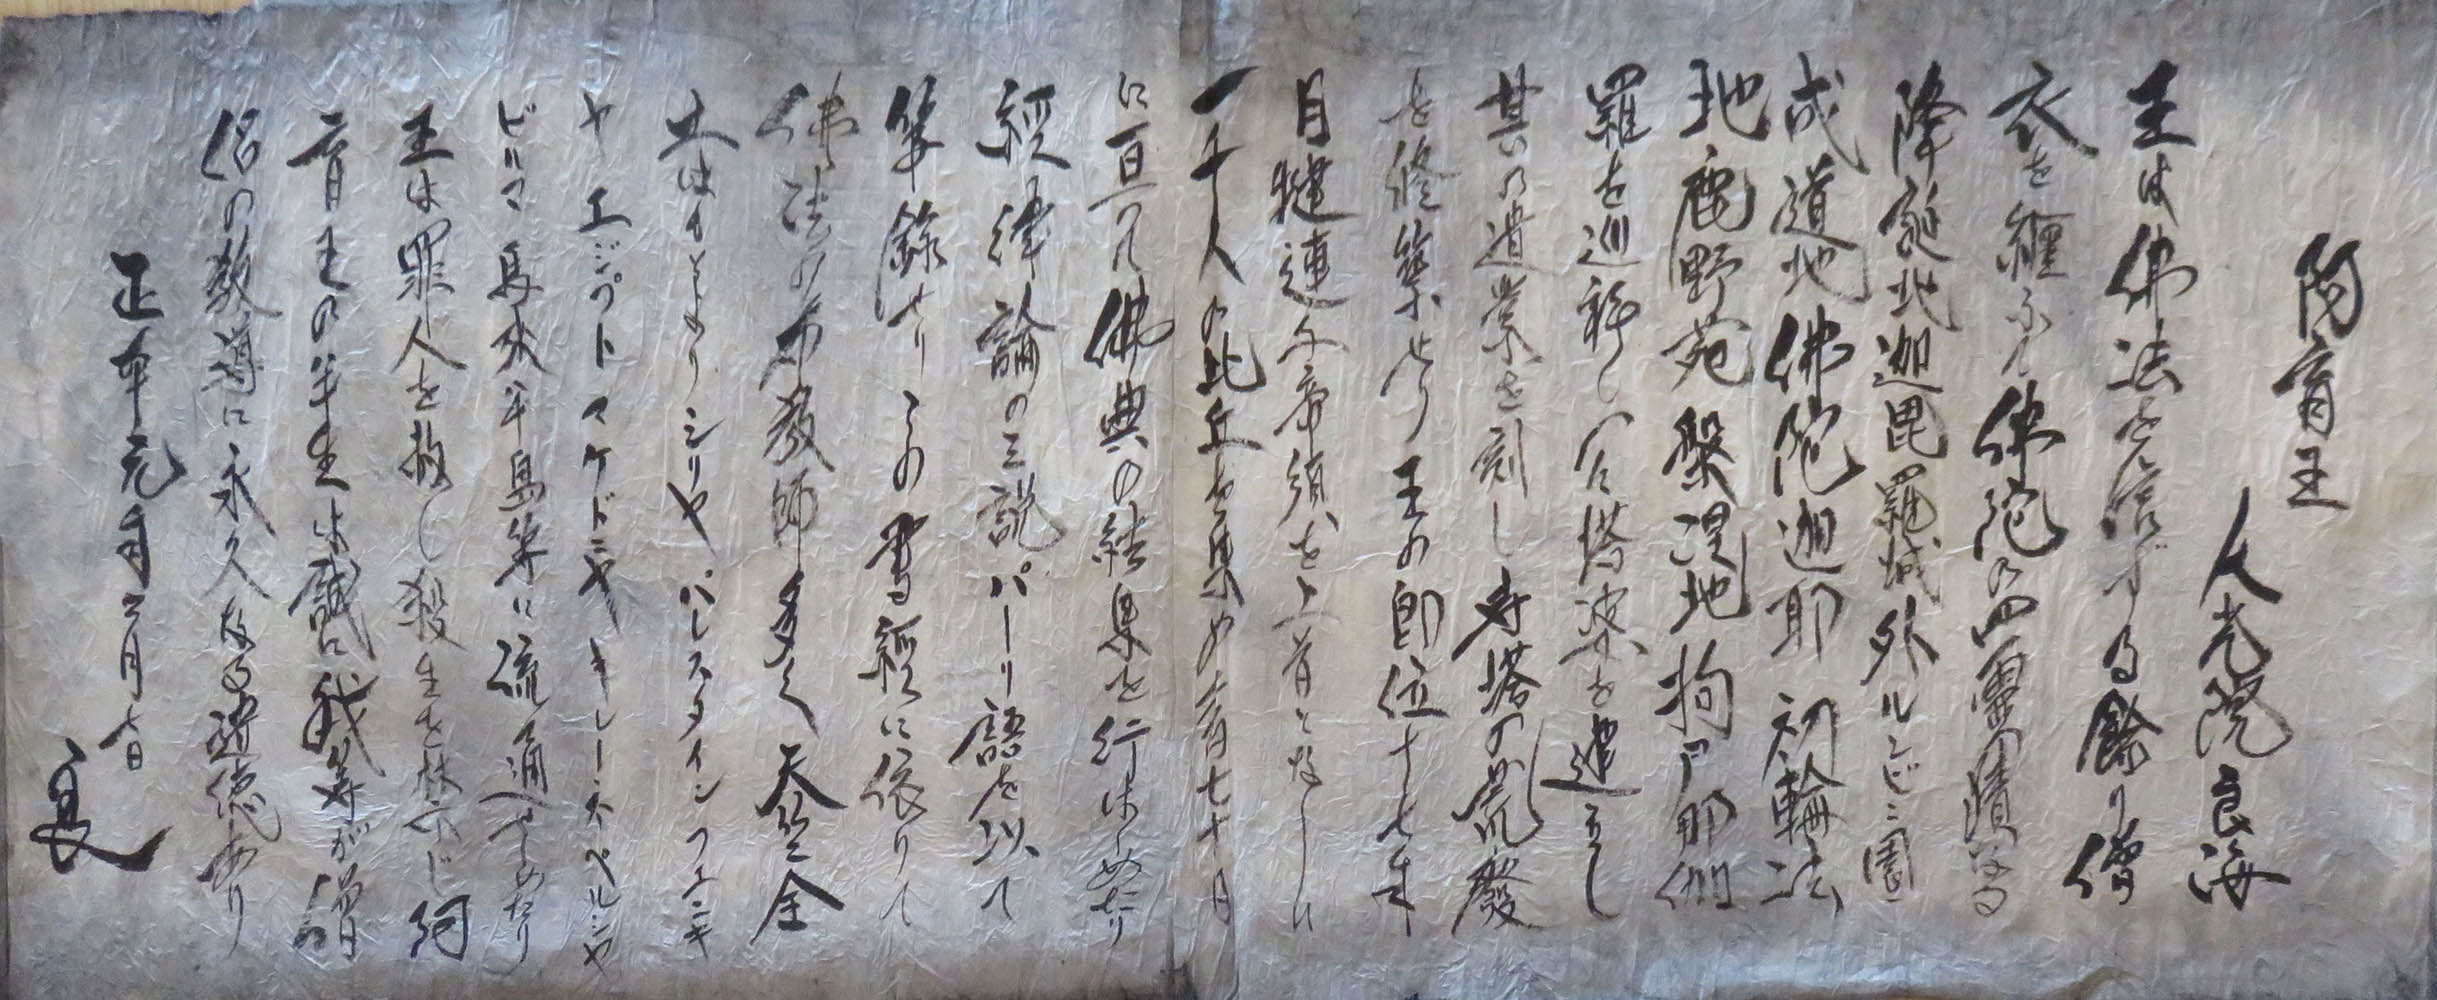 阿育王
人光院良海
王は佛法を信ずる餘り僧
衣を纏ふて佛陀の四霊蹟なる
降誕地迦毘羅城外ルンビニ園
成道地佛陀迦耶 初輪法
地鹿野苑 槃涅地 拘尸那伽
羅を巡拜し 塔婆を建立し
其の遺業を刻し 寿塔の荒廢
を修築せり 王の即位十七年
目犍連子帝須を上首となし
一千人の比丘を集め 七十月
に亘って佛典の結集を行はしめたり
經律論の三説パーリ語を以て
筆錄せり この寫經に依りて
佛法の布教師多く 天竺全
土はもとより シリヤ パレスタイン フエニキ
ヤ エジプト マケドニヤ キレーネ ペルシヤ
ビルマ 馬來半島等に流通せしめたり
王は罪人を赦し 殺生を禁じ 阿
育王の半生は誠に我等が僧
侶の教導に永久なる遺徳あり
正平元年二月七日
良